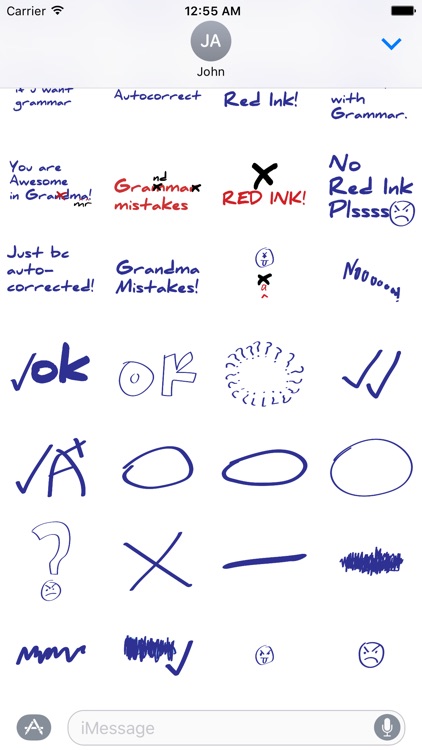 Carrier 12:55 AM
JA
John
if u want
grammar
Autocorrect
Red Ink!
with
Grammar.
You are
Awesome
in Grandma!
mr
nd
Grammar
mistakes
X
RED INK!
No
Red Ink
Plssss
Just bc
auto-
corrected!
Grandma
Mistakes!
a
^
Nooooo!
ok
OK
A+
?
iMessage